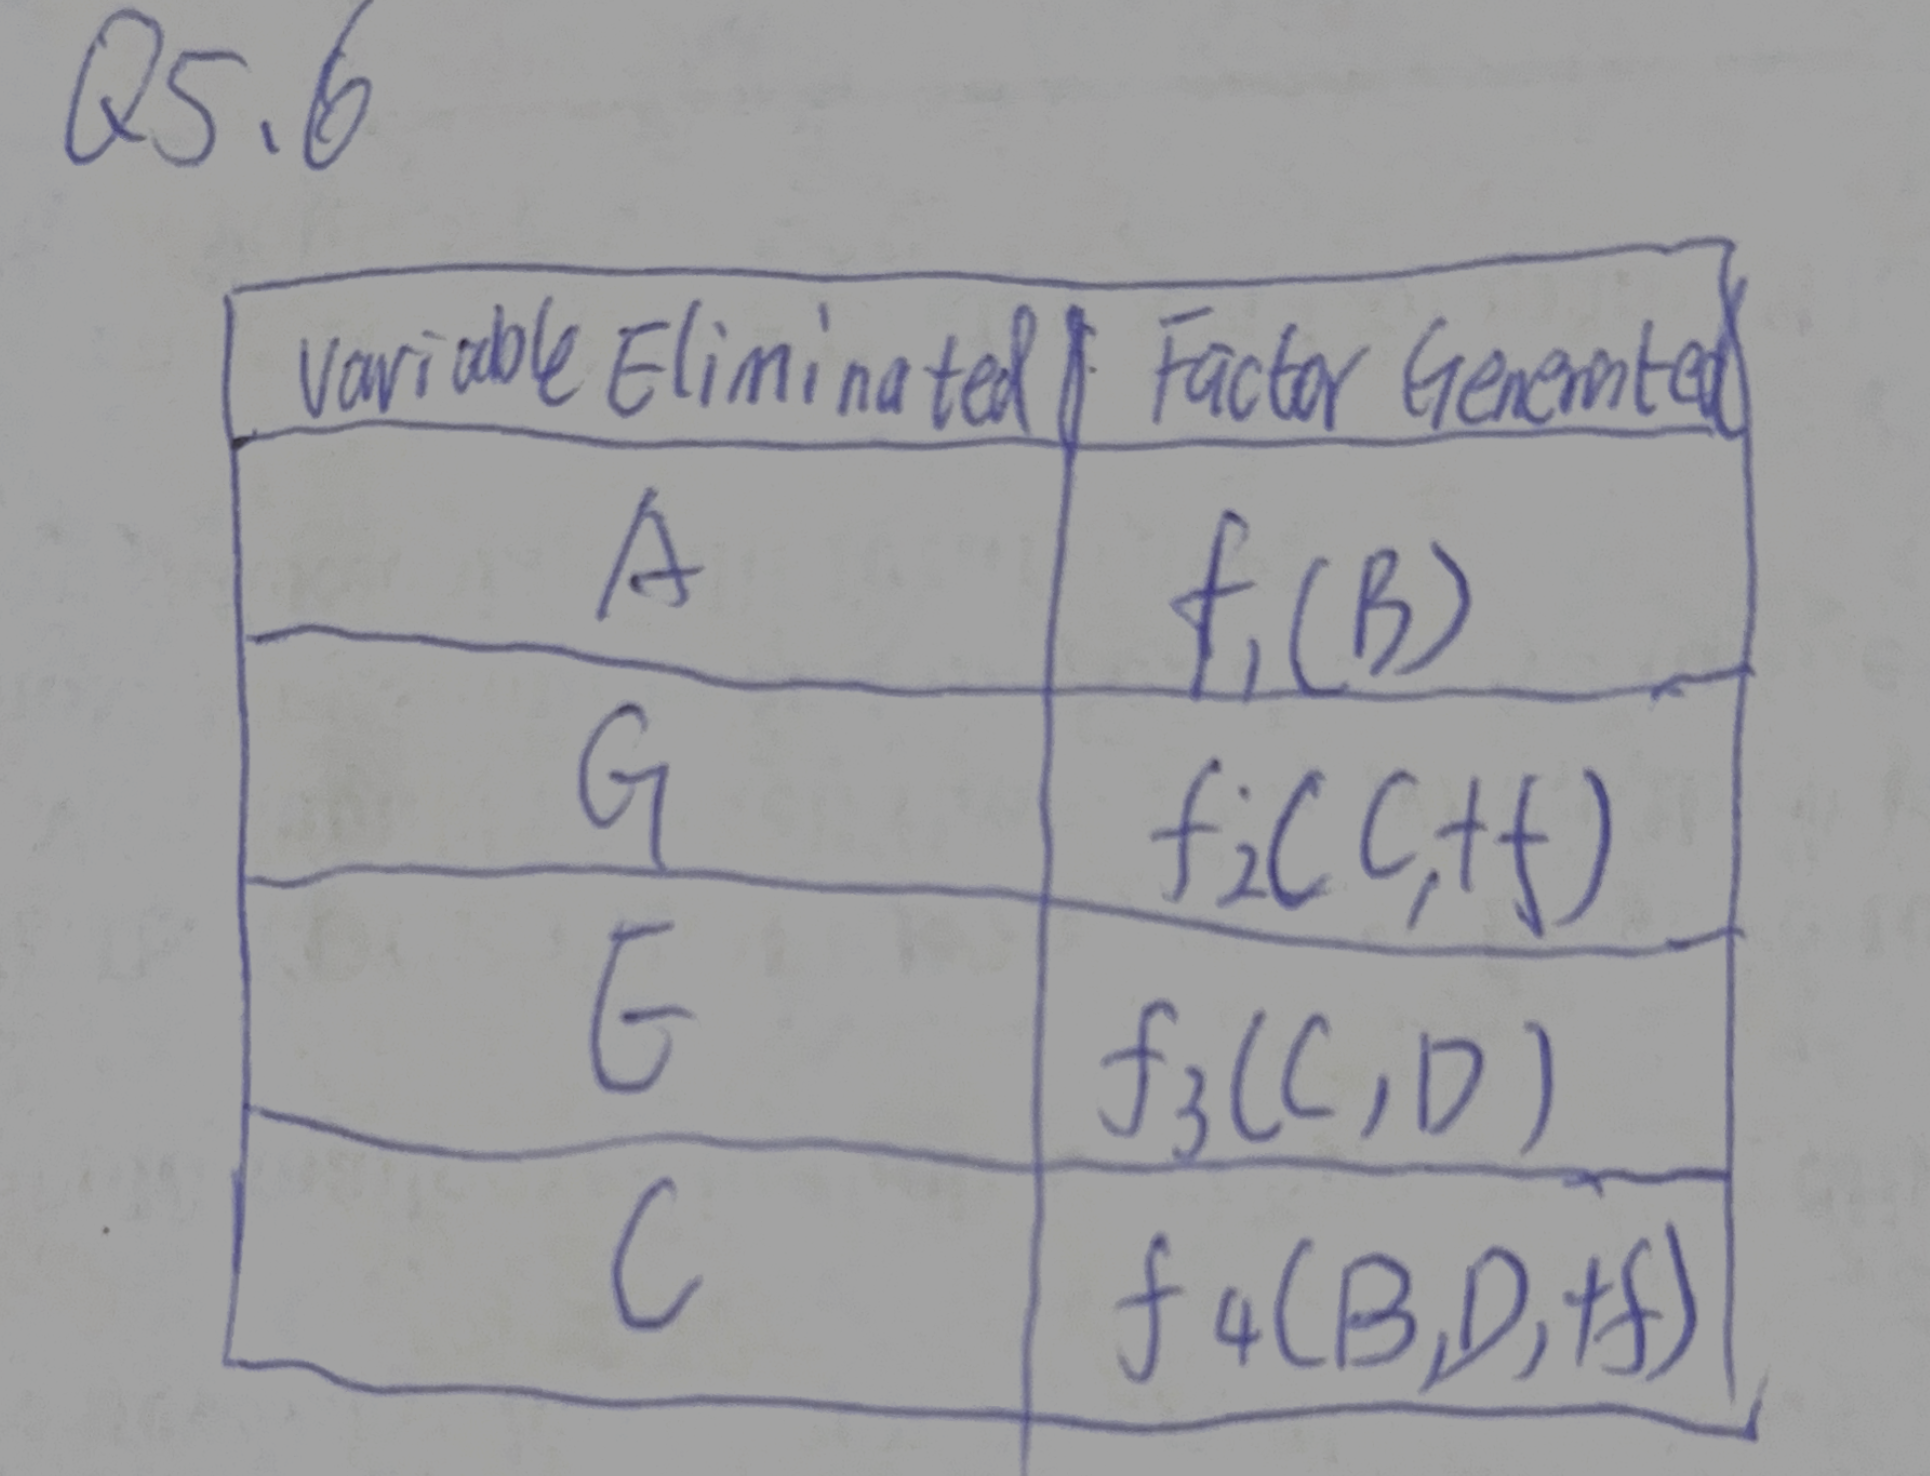 Q5.6
Variable Eliminated Factor Generated
A f1(B)
G f2(C,+f)
E f3(C,D)
C f4(B,D,+f)